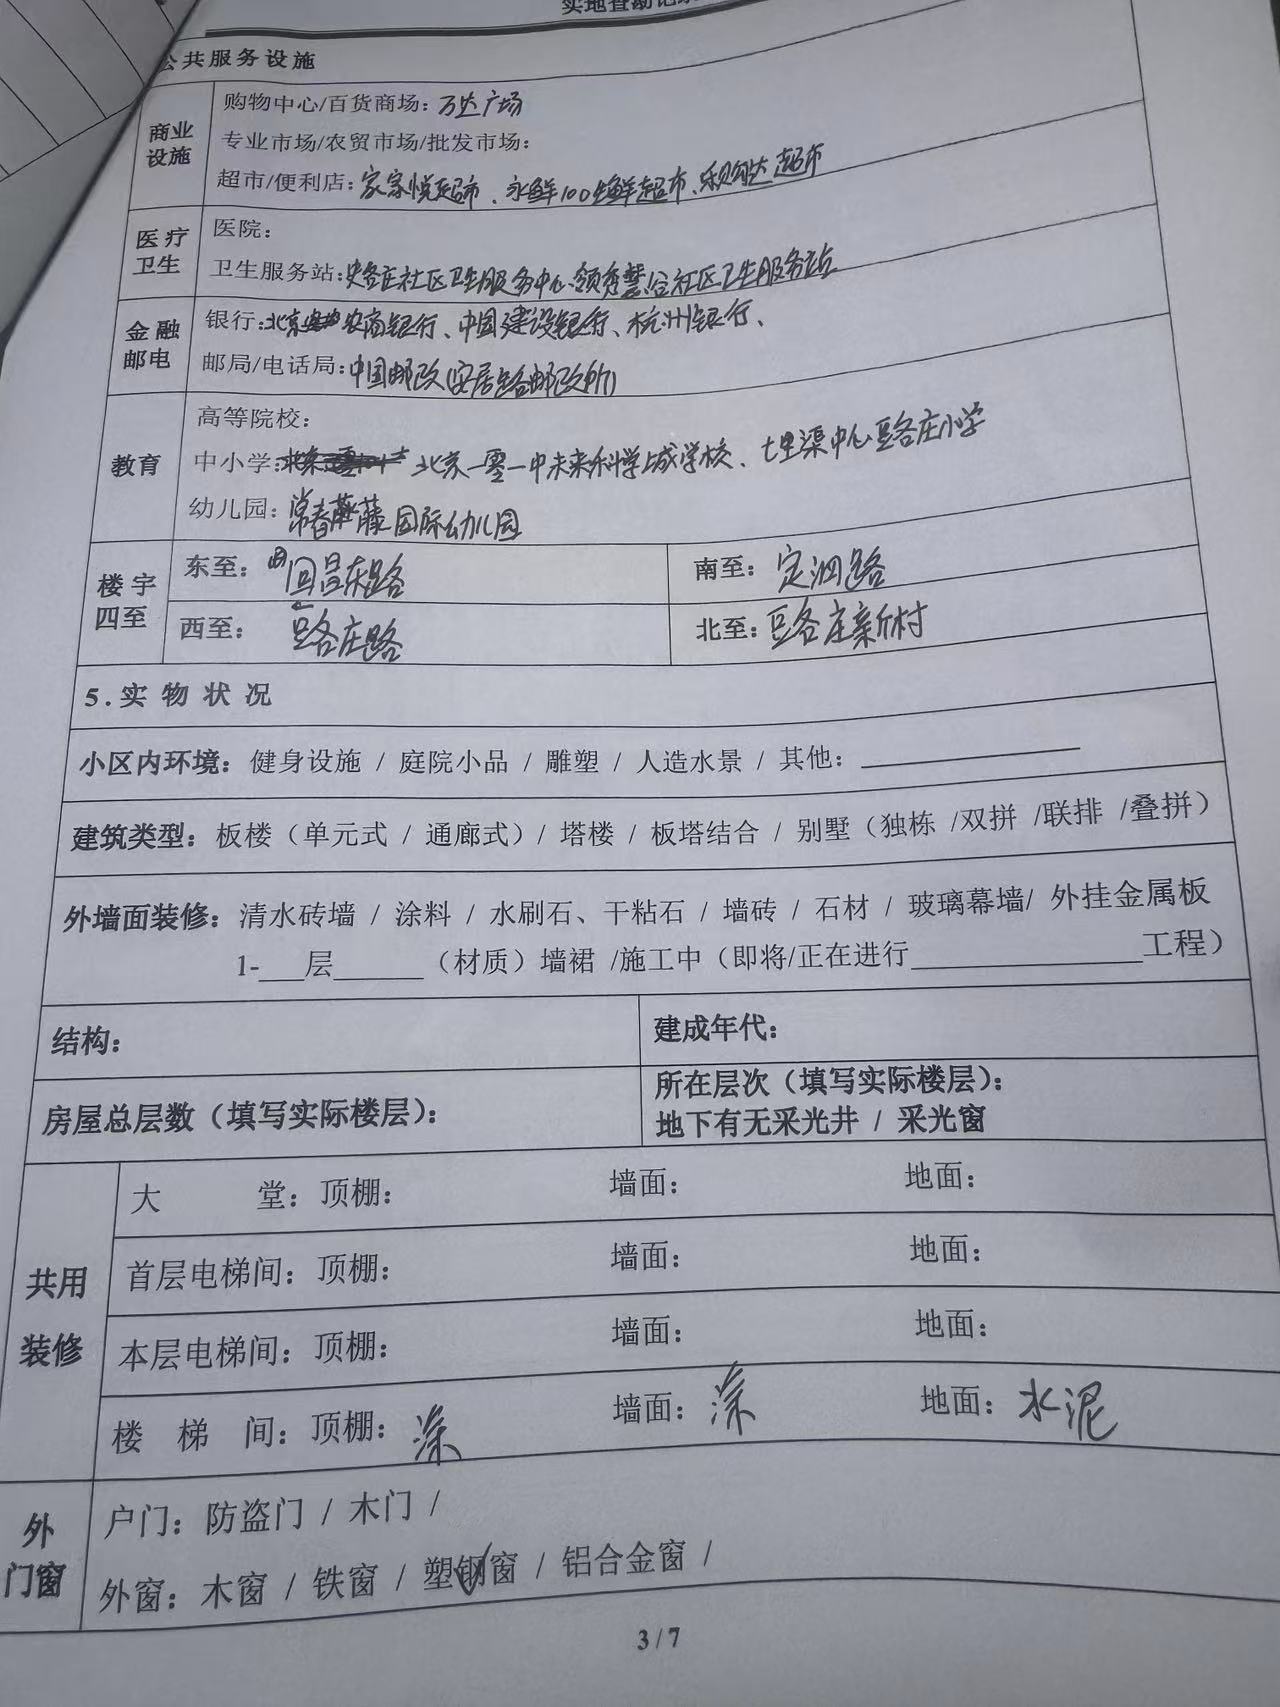 实地查勘记录
公共服务设施
商业设施
购物中心/百货商场：万达广场
专业市场/农贸市场/批发市场：
超市/便利店：家家悦超市、永鲜100生鲜超市、乐购达超市
医疗卫生
医院：
卫生服务站：史各庄社区卫生服务中心、领秀慧谷社区卫生服务站
金融邮电
银行：北京农商银行、中国建设银行、杭州银行、
邮局/电话局：中国邮政（安居路邮政所）
教育
高等院校：
中小学：北京一零一中未来科学城学校、七里渠中心豆各庄小学
幼儿园：常春藤国际幼儿园
楼宇四至
东至：回昌东路
南至：定泗路
西至：豆各庄路
北至：豆各庄新村
5.实物状况
小区内环境：健身设施 / 庭院小品 / 雕塑 / 人造水景 / 其他：
建筑类型：板楼（单元式 / 通廊式）/ 塔楼 / 板塔结合 / 别墅（独栋 /双拼 /联排 /叠拼）
外墙面装修：清水砖墙 / 涂料 / 水刷石、干粘石 / 墙砖 / 石材 / 玻璃幕墙/ 外挂金属板
1-___层______（材质）墙裙 /施工中（即将/正在进行________________工程）
结构：
建成年代：
房屋总层数（填写实际楼层）：
所在层次（填写实际楼层）：
地下有无采光井 / 采光窗
共用装修
大堂：顶棚： 墙面： 地面：
首层电梯间：顶棚： 墙面： 地面：
本层电梯间：顶棚： 墙面： 地面：
楼梯间：顶棚：涂 墙面：涂 地面：水泥
外门窗
户门：防盗门 / 木门 /
外窗：木窗 / 铁窗 / 塑钢窗 / 铝合金窗 /
3 / 7